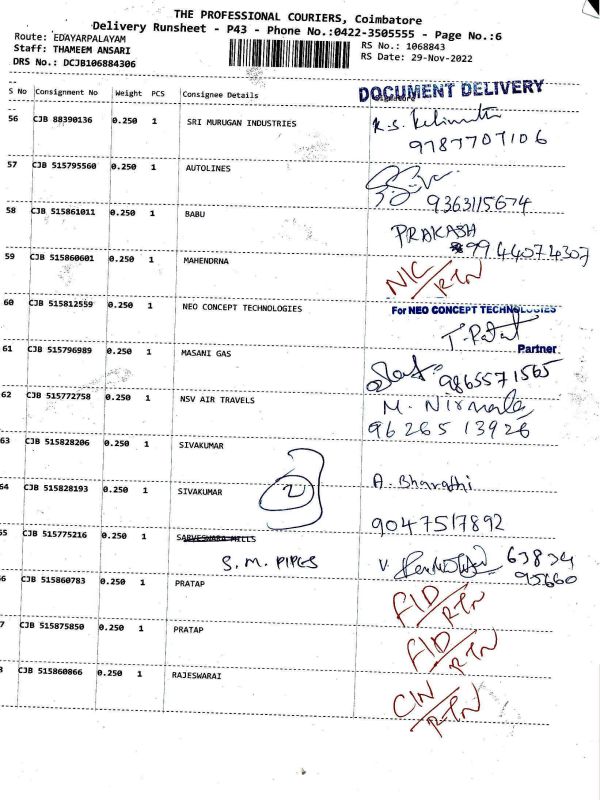 THE PROFESSIONAL COURIERS, Coimbatore
Delivery Runsheet - P43 - Phone No.:0422-3505555 - Page No.:6
Route: EDAYARPALAYAM
RS No.: 1068843
Staff: THAMEEM ANSARI
RS Date: 29-Nov-2022
DRS No.: DCJB106884306
DOCUMENT DELIVERY
S No Consignment No Weight PCS Consignee Details
56 CJB 88390136 0.250 1 SRI MURUGAN INDUSTRIES
9787707106
57 CJB 515795560 0.250 1 AUTOLINES
9363115674
58 CJB 515861011 0.250 1 BABU
PRAKASH
9944074307
59 CJB 515860601 0.250 1 MAHENDRNA
NIC/RTN
60 CJB 515812559 0.250 1 NEO CONCEPT TECHNOLOGIES
For NEO CONCEPT TECHNOLOGIES
Partner
61 CJB 515796989 0.250 1 MASANI GAS
9865571565
62 CJB 515772758 0.250 1 NSV AIR TRAVELS
M. Nirmala
9626513926
63 CJB 515828206 0.250 1 SIVAKUMAR
2
64 CJB 515828193 0.250 1 SIVAKUMAR
A. Bharathi
9047517892
65 CJB 515775216 0.250 1 SARVESWARA MILLS
S.M. PIPES
63834
95660
6 CJB 515860783 0.250 1 PRATAP
FID/RTN
7 CJB 515875850 0.250 1 PRATAP
FID/RTN
8 CJB 515860866 0.250 1 RAJESWARAI
CIN/RTN